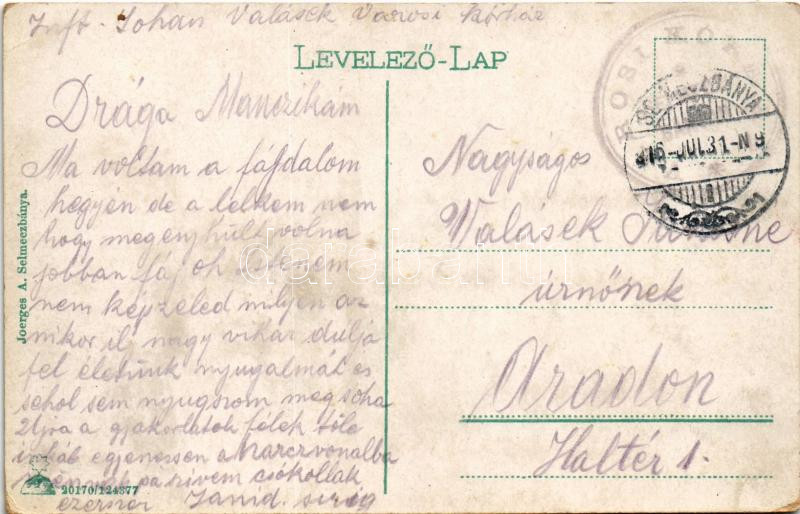 Inft. Johan Valásek Városi kórház
LEVELEZŐ-LAP
SELMECZBÁNYA
916 JUL 31 - N 9
Drága Manczikám
Ma voltam a fájdalom
hegyén de a lelkem nem
hogy megenyhült volna
jobban fáj oh Istenem
nem képzeled milyen az
mikor ily nagy vihar dulja
fel életünk nyugalmát és
sehol sem nyugszom meg soha
Ujra a gyakorlatok félek tőle
inkáb egyenessen a harczvonalba
pá szivem csókollak
ezerszer Janid. sirig
Nagyságos
Valásek
úrnőnek
Aradon
Haltér 1.
Joerges A. Selmeczbánya.
20170/124377